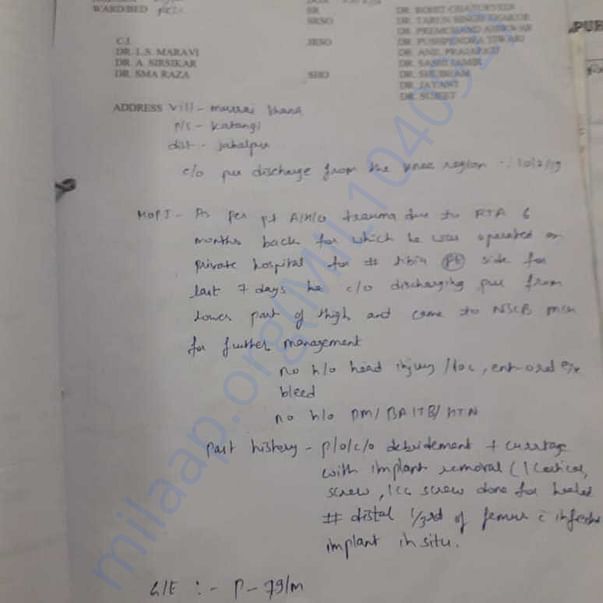 WARD/BED
SR
DR. ROHIT CHATURVEDI
SRSO
DR. TARUN SINGH THAKUR
C.I.
JRSO
DR. PUSHPENDRA TIWARI
DR. I.S. MARAVI
DR. ANIL PRAJAPATI
DR. A. SIRSIKAR
DR. SMA RAZA
SHO
DR. SHUBHAM
DR. JAYANT
DR. SUJEET
ADDRESS Vill -
P/S - Katangi
dist - Jabalpur
c/o pus discharge from the knee region
HOPI - As per pt A/H/O trauma due to RTA 6
months back for which he was operated on
private hospital for # tibia side for
last 7 days he c/o discharging pus from
lower part of thigh and came to NSCB
for further management
no h/o head injury / LOC, ent oral
bleed
no h/o DM/ BA/TB/ HTN
Past history - p/o/c/o debridement + currtage
with implant removal (1 cortical
screw, 1 CC screw done for healed
# distal 1/3rd of femur c̄ infected
implant in situ.
G/E :- P - 79/m
milaap.org